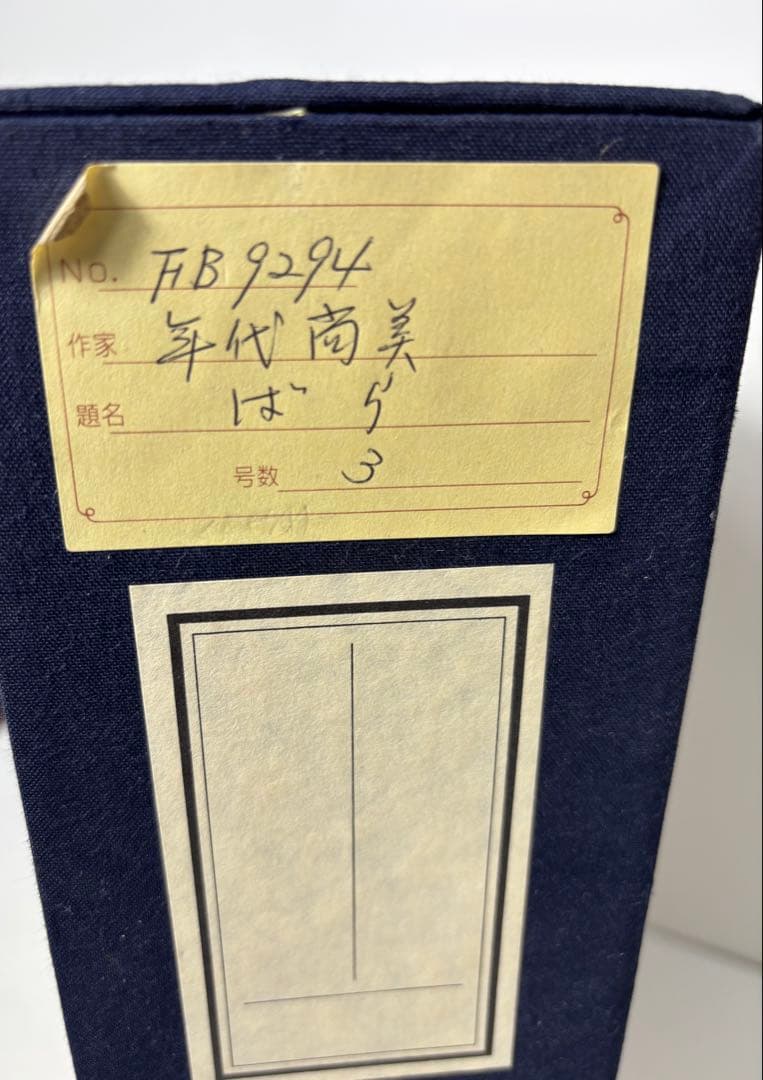 No. FB9294
作家 年代尚美
題名 ばら
号数 3